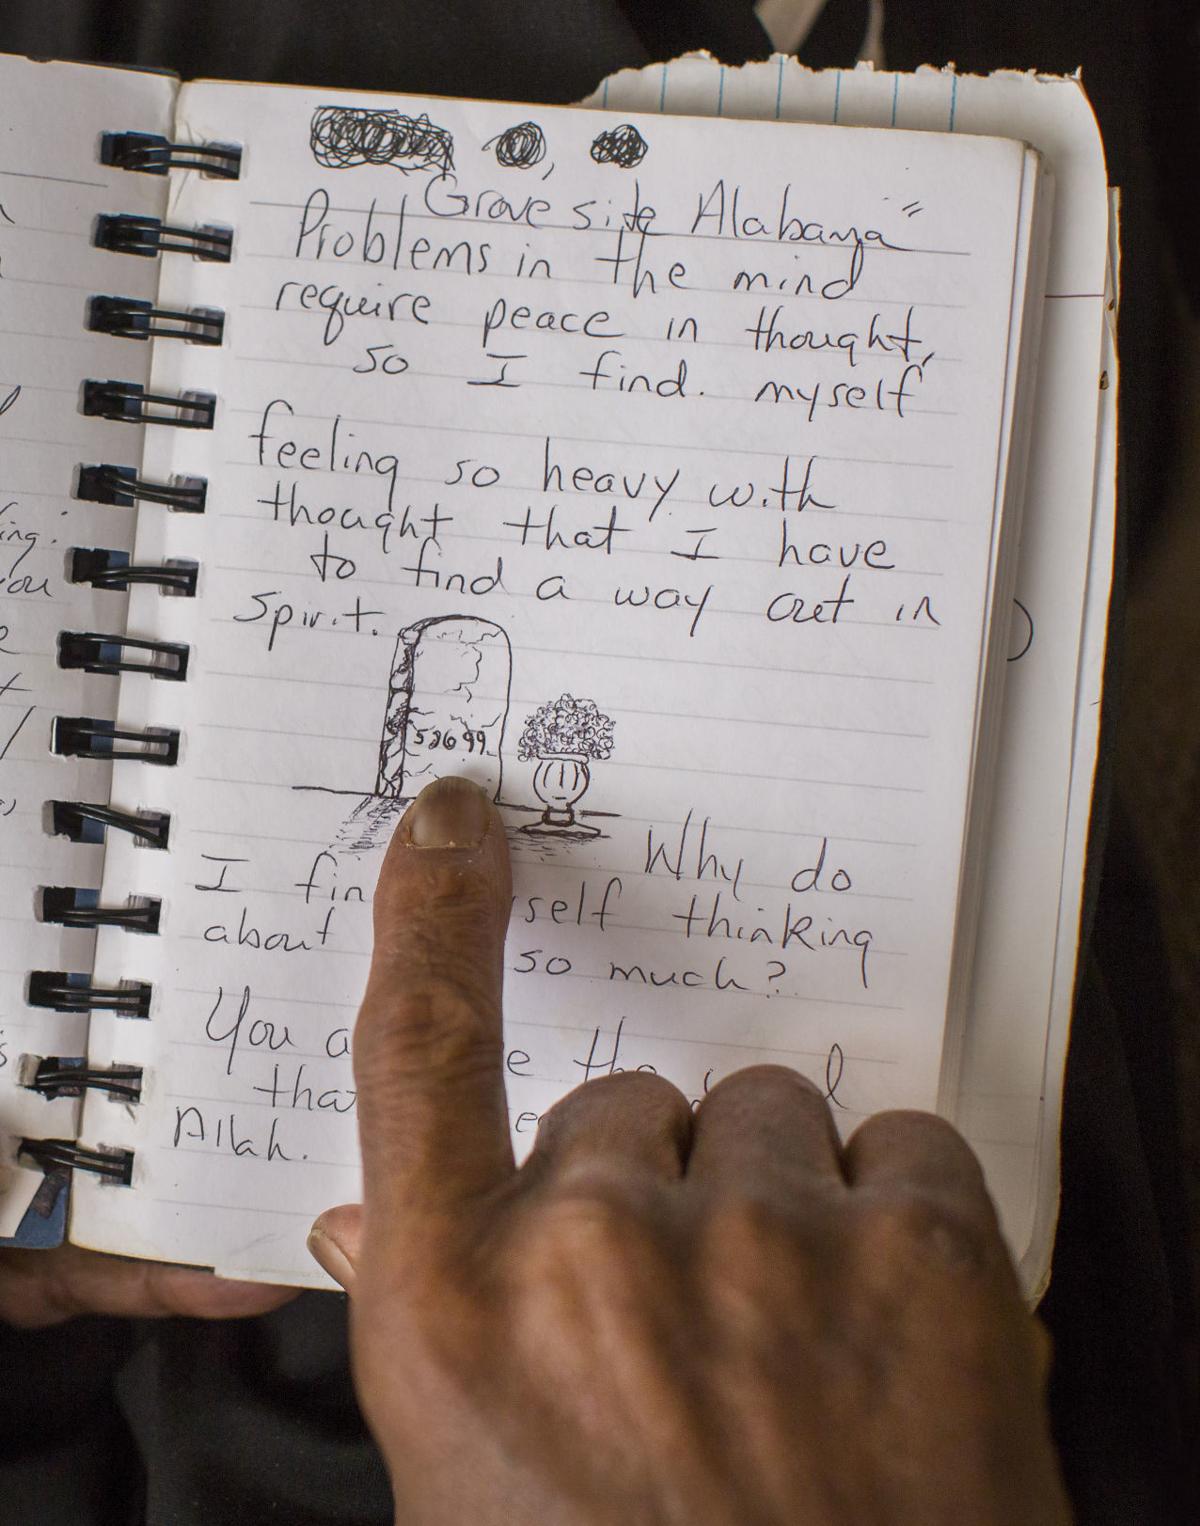 Grave site Alabama"
Problems in the mind
require peace in thought,
so I find. myself
feeling so heavy with
thought that I have
to find a way out in
Spirit.
52699
Why do
I fin self thinking
about so much?
You a e the
tha
Allah.
ing:
you